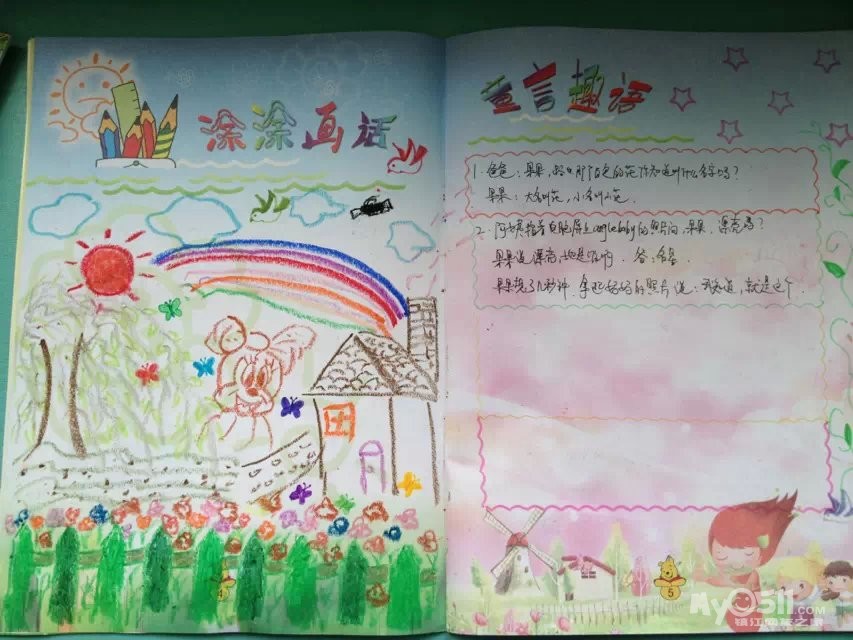 涂涂画话
童言趣语
1. 爸爸:果果,路上那个白色的花你知道叫什么名字吗?
果果:大叫花,小叫小花.
2. 阿姨指着电脑屏上anglebaby的照片问,果果,漂亮吗?
果果道:漂亮,她是谁啊. 答:
果果想了几秒钟,拿起妈妈的照片说:我知道,就是这个.
5
My0511.COM
镇江网友之家